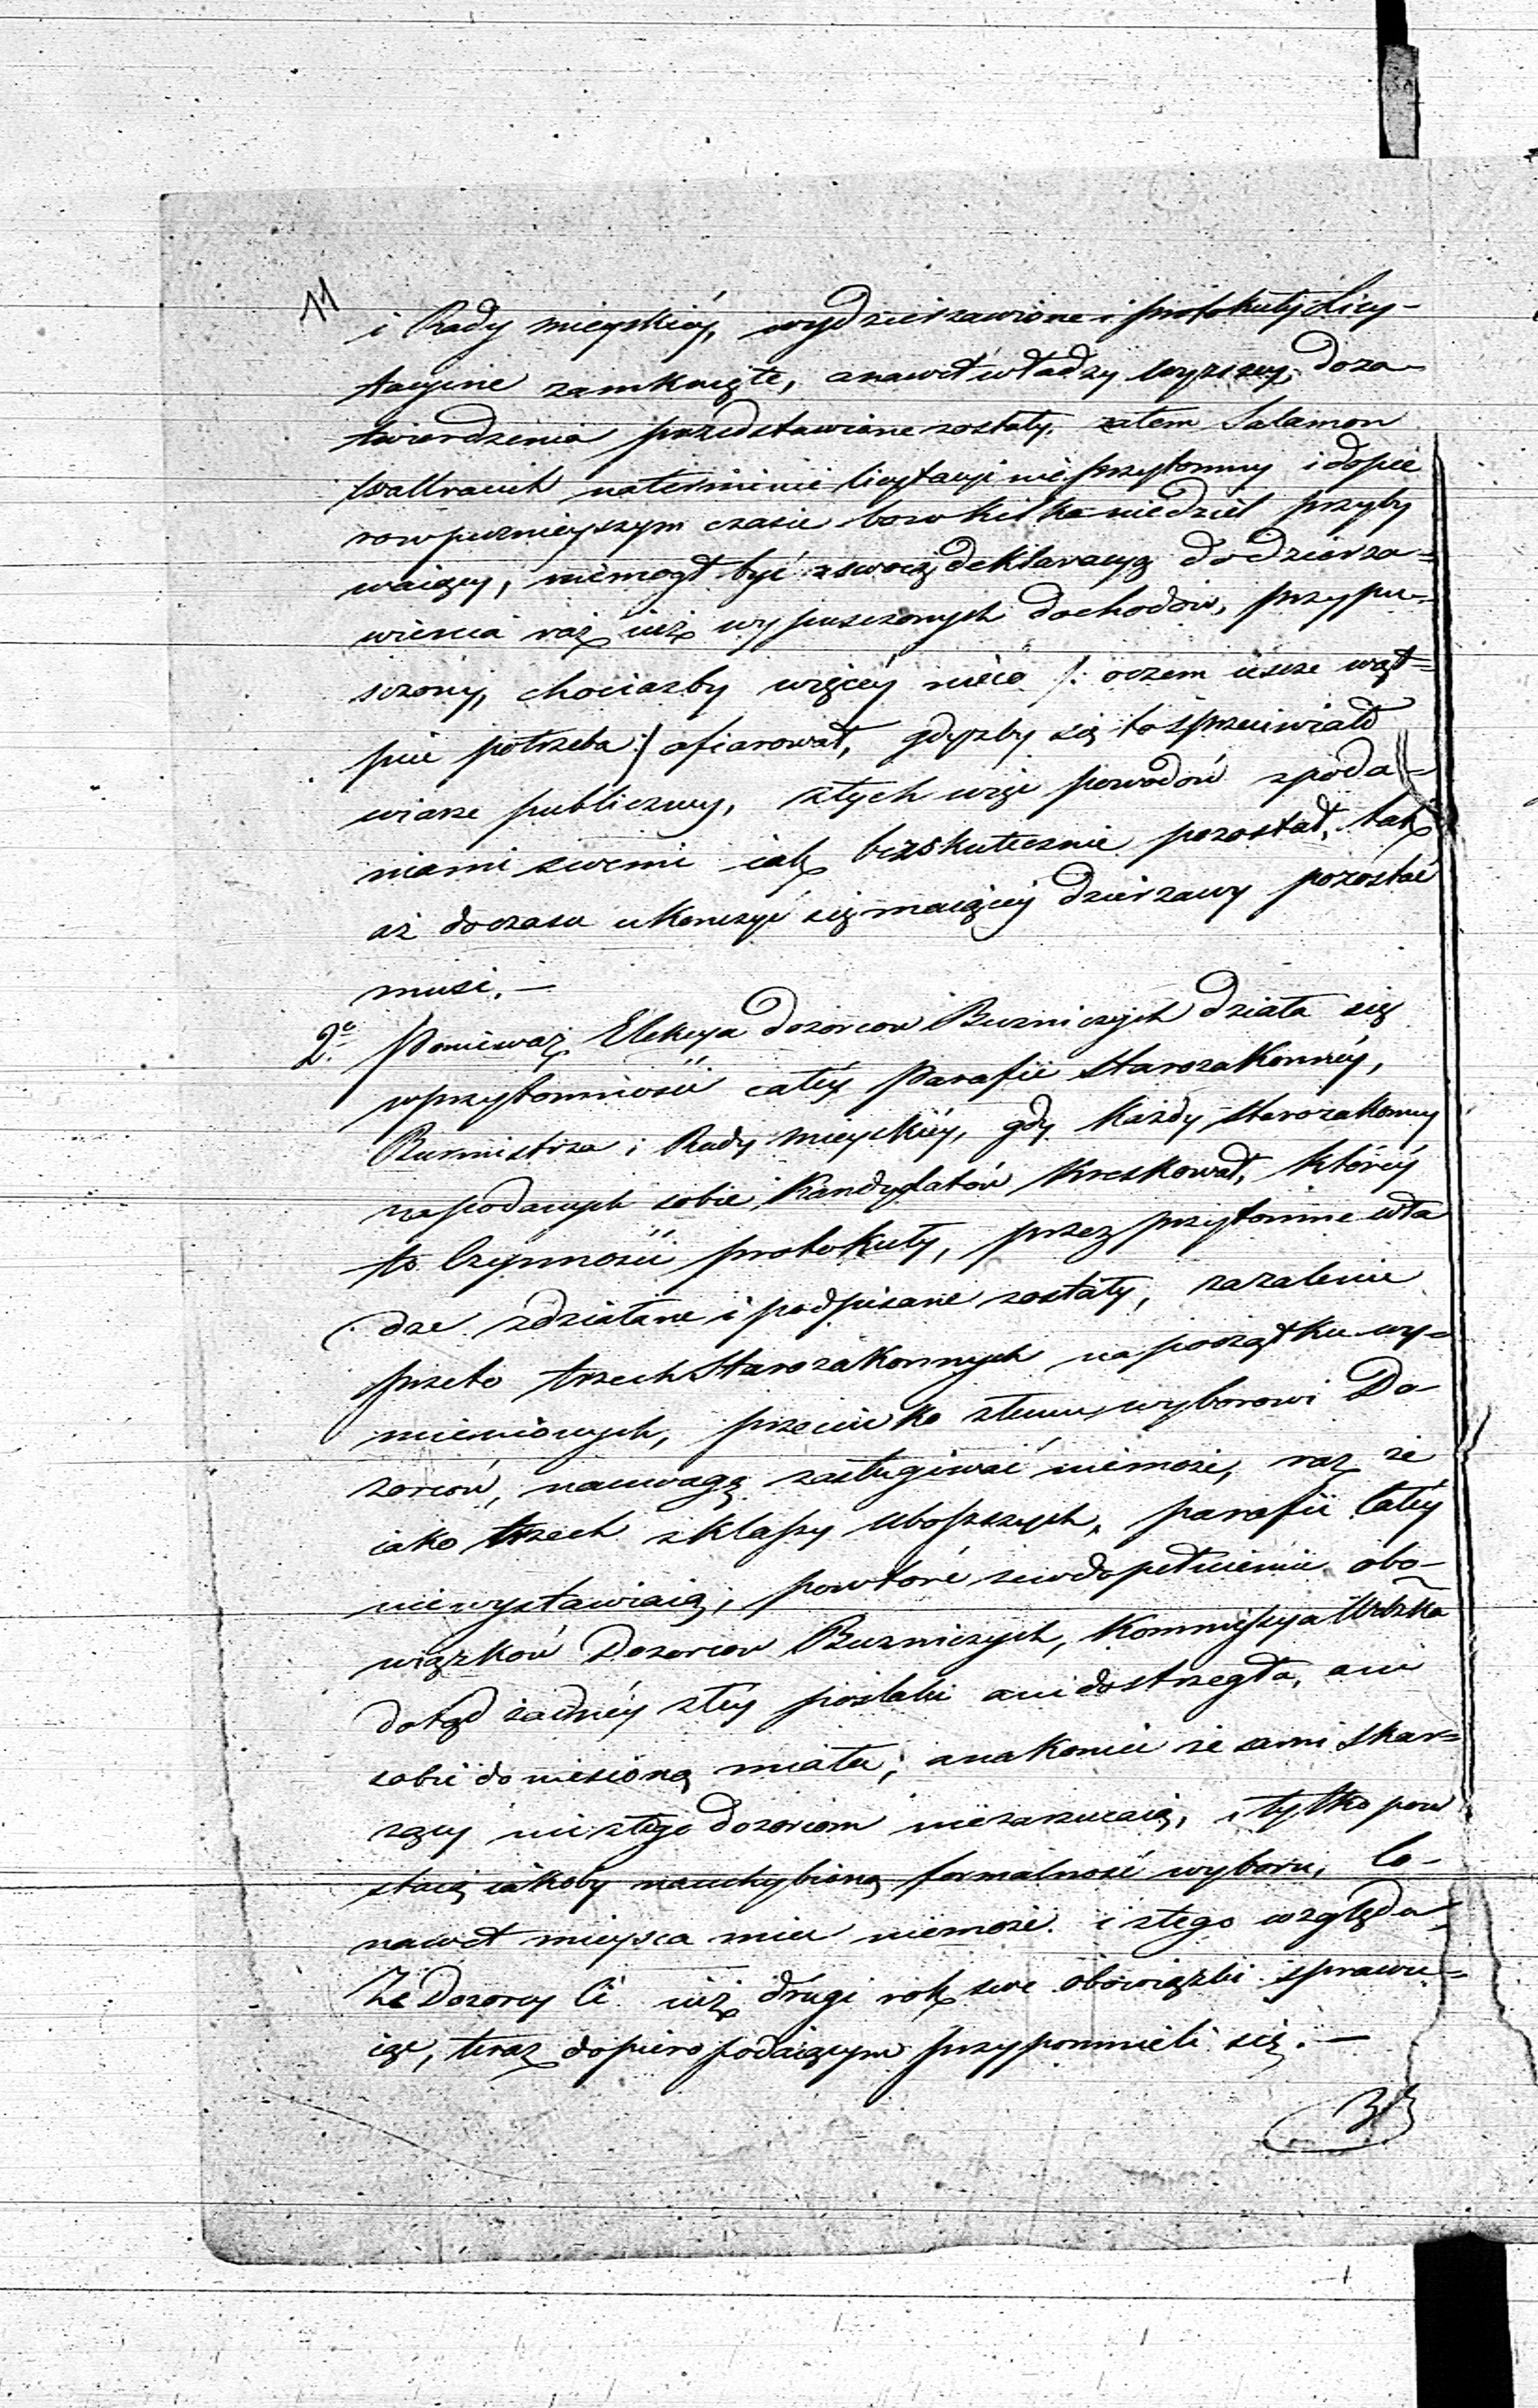 11
i Rady mieyskiéy, wydzierzawione i protokuły Licy-
tacyine zamknięte, anawet władzy wyzszey, doza-
twierdzenia przedstawione zostały. zatem Salamon
Wallrauch naterminie licytacyi nie przytomny i dopie
row puznieyszym czasie bo w kilka niedziel przyby
waiący, niemogł być z swoią deklaracyą do dzierza-
wienia raz iuż wypuszczonych dochodów, przypu-
szczony, chociazby więcéy nieco /: oczem ieszcze wąt-
pić potrzeba :/ ofiarował, gdyzby się to sprzeciwiało
wiarze publiczney, ztych więc powodów zpoda-
niami swemi iak bezskutecznie pozostał, tak
aż doczasu ukonczyć się maiącéy dzierzawy pozostać
musi. —
2e Ponieważ Elekcya dozorcow Buzniczych działa się
wprzytomności całéy Parafii Starozakonnéy,
Burmistrza i Rady mieyskiéy, gdy każdy starozakonny
napodanych sobie Kandydatów kreskował, któréy
to czynności protokuły, przez przytomne wła
dze zdziałane i podpisane zostały, zazalenie
przeto trzech Starozakonnych napoczątku wy-
mienionych, przeciwko temu wyborowi Do-
zorców, nauwagę zasługiwać niemoże, raz że
iako trzech z klassy uboższych, parafii całéy
niewystawiaią, powtóre wdopełnieniu obo-
wiązków Dozorcow Buzniczych, Kommissya Wdzka
dotąd żadnéy złey poszlaki ani dostrzegła, ani
sobie doniesioną miała; anakoniec że sami skar-
zący nic złego dozorcom niezarzucaią, i tylko pow
staią iakoby nauchybioną formalność wyboru, co-
nawet mieysca mieć niemoże. i ztego względu
Że Dozorcy Ci iuż drugi rok swe obowiązki sprawu-
ią, teraz dopiero podaiącym przypomnieli się. —